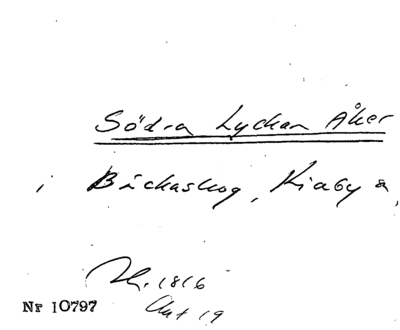 Södra Lyckan Åker
i Bäckaskog, Kiaby s,
1816
Akt 19
Nr 10797